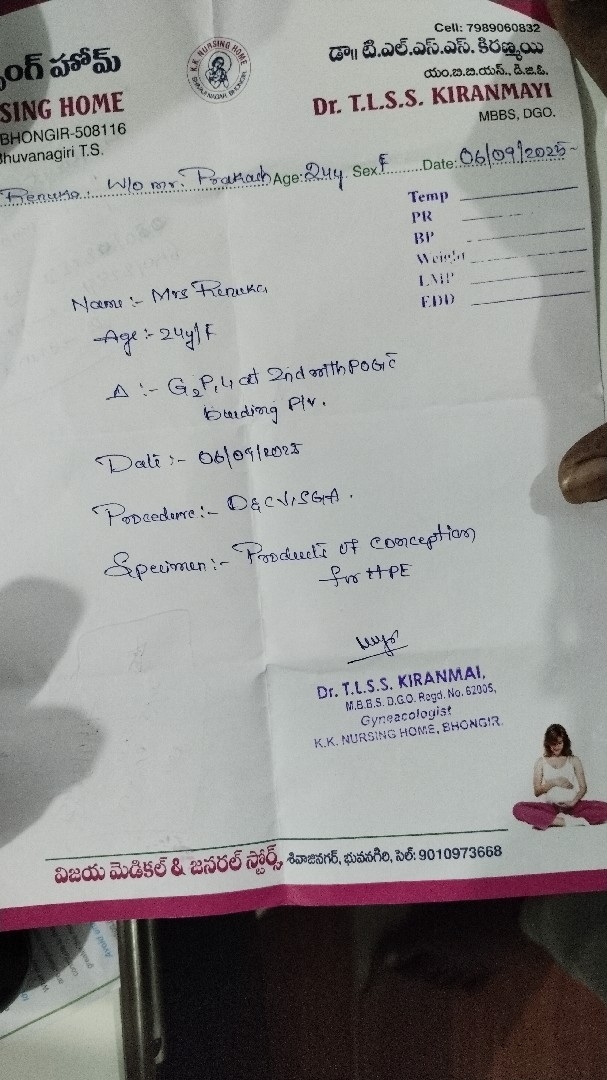 Cell: 7989060832
ంగ్ హోమ్
డా॥ టి.ఎల్.ఎస్.ఎస్. కిరణ్మయి
యం.బి.బి.యస్., డి.జి.ఓ.
SING HOME
Dr. T.L.S.S. KIRANMAYI
BHONGIR-508116
MBBS, DGO.
bhuvanagiri T.S.
K.K. NURSING HOME
SHIVAJI NAGAR, BHONGIR
Renuka: W/o mr. Prakash Age: 24y. Sex F Date: 06/09/2025
Temp
PR
BP
Weight
LMP
EDD
Name :- Mrs Renuka
Age :- 24y/F
Δ :- G2P1L1 at 2nd mth POG c
bleeding P/V.
Date :- 06/09/2025
Procedure :- D&C ↓ SGA.
Specimen :- Products of conception
for HPE
Dr. T.L.S.S. KIRANMAI,
M.B.B.S. D.G.O. Regd. No. 62005,
Gyneacologist
K.K. NURSING HOME, BHONGIR.
విజయ మెడికల్ & జనరల్ స్టోర్స్, శివాజినగర్, భువనగిరి, సెల్: 9010973668